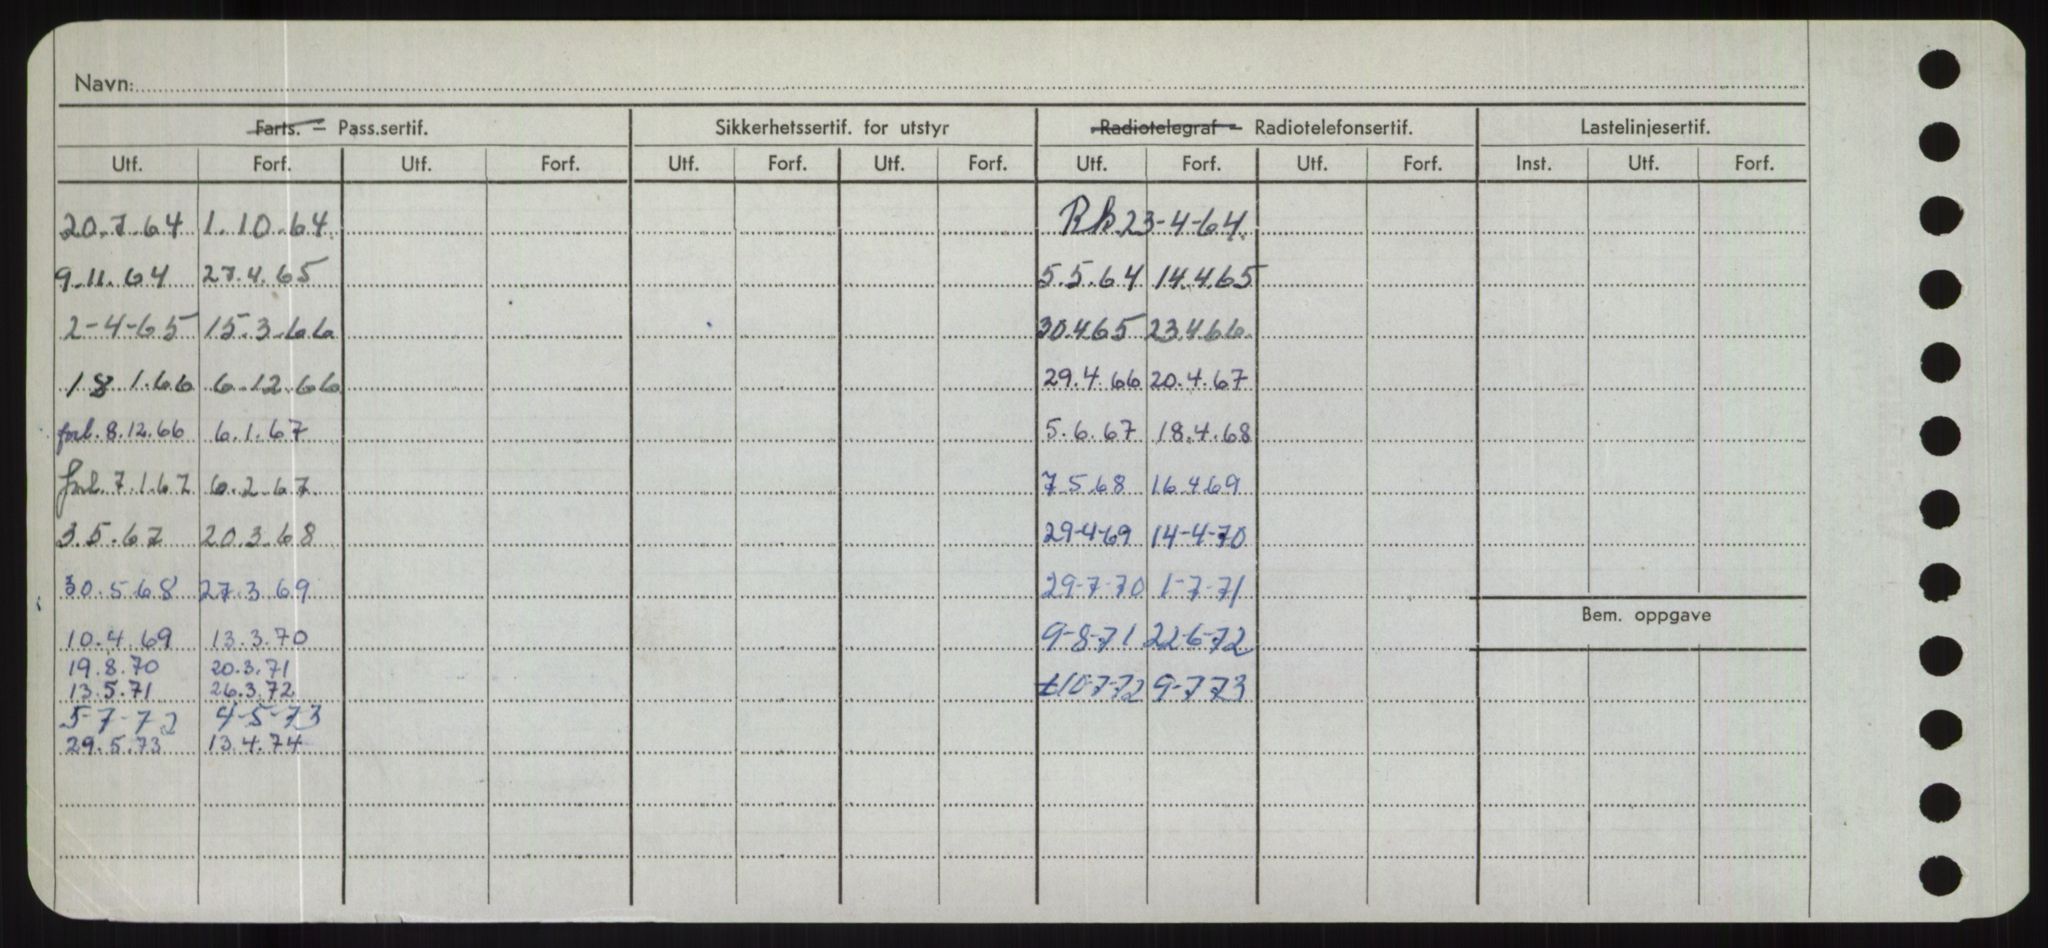 Navn:
Farts. – Pass.sertif. Sikkerhetssertif. for utstyr Radiotelegraf – Radiotelefonsertif. Lastelinjesertif.
Utf. Forf. Utf. Forf. Utf. Forf. Utf. Forf. Utf. Forf. Utf. Forf. Inst. Utf. Forf.
20.7.64 1.10.64 Rk 23-4-64.
9.11.64 27.4.65 5.5.64 14.4.65
2-4-65 15.3.66 30.4.65 23.4.66.
18 1.66 6.12.66 29.4.66 20.4.67
forl. 8.12.66 6.1.67 5.6.67 18.4.68
forl. 7.1.67 6.2.67 7.5.68 16.4.69
3.5.67 20.3.68 29-4-69 14-4-70
30.5.68 27.3.69 29-7-70 1-7-71
Bem. oppgave
10.4.69 13.3.70 9-8-71 22-6-72
19.8.70 20.3.71
13.5.71 26.3.72 10-7-72 9-7-73
5-7-72 4-5-73
29.5.73 13.4.74